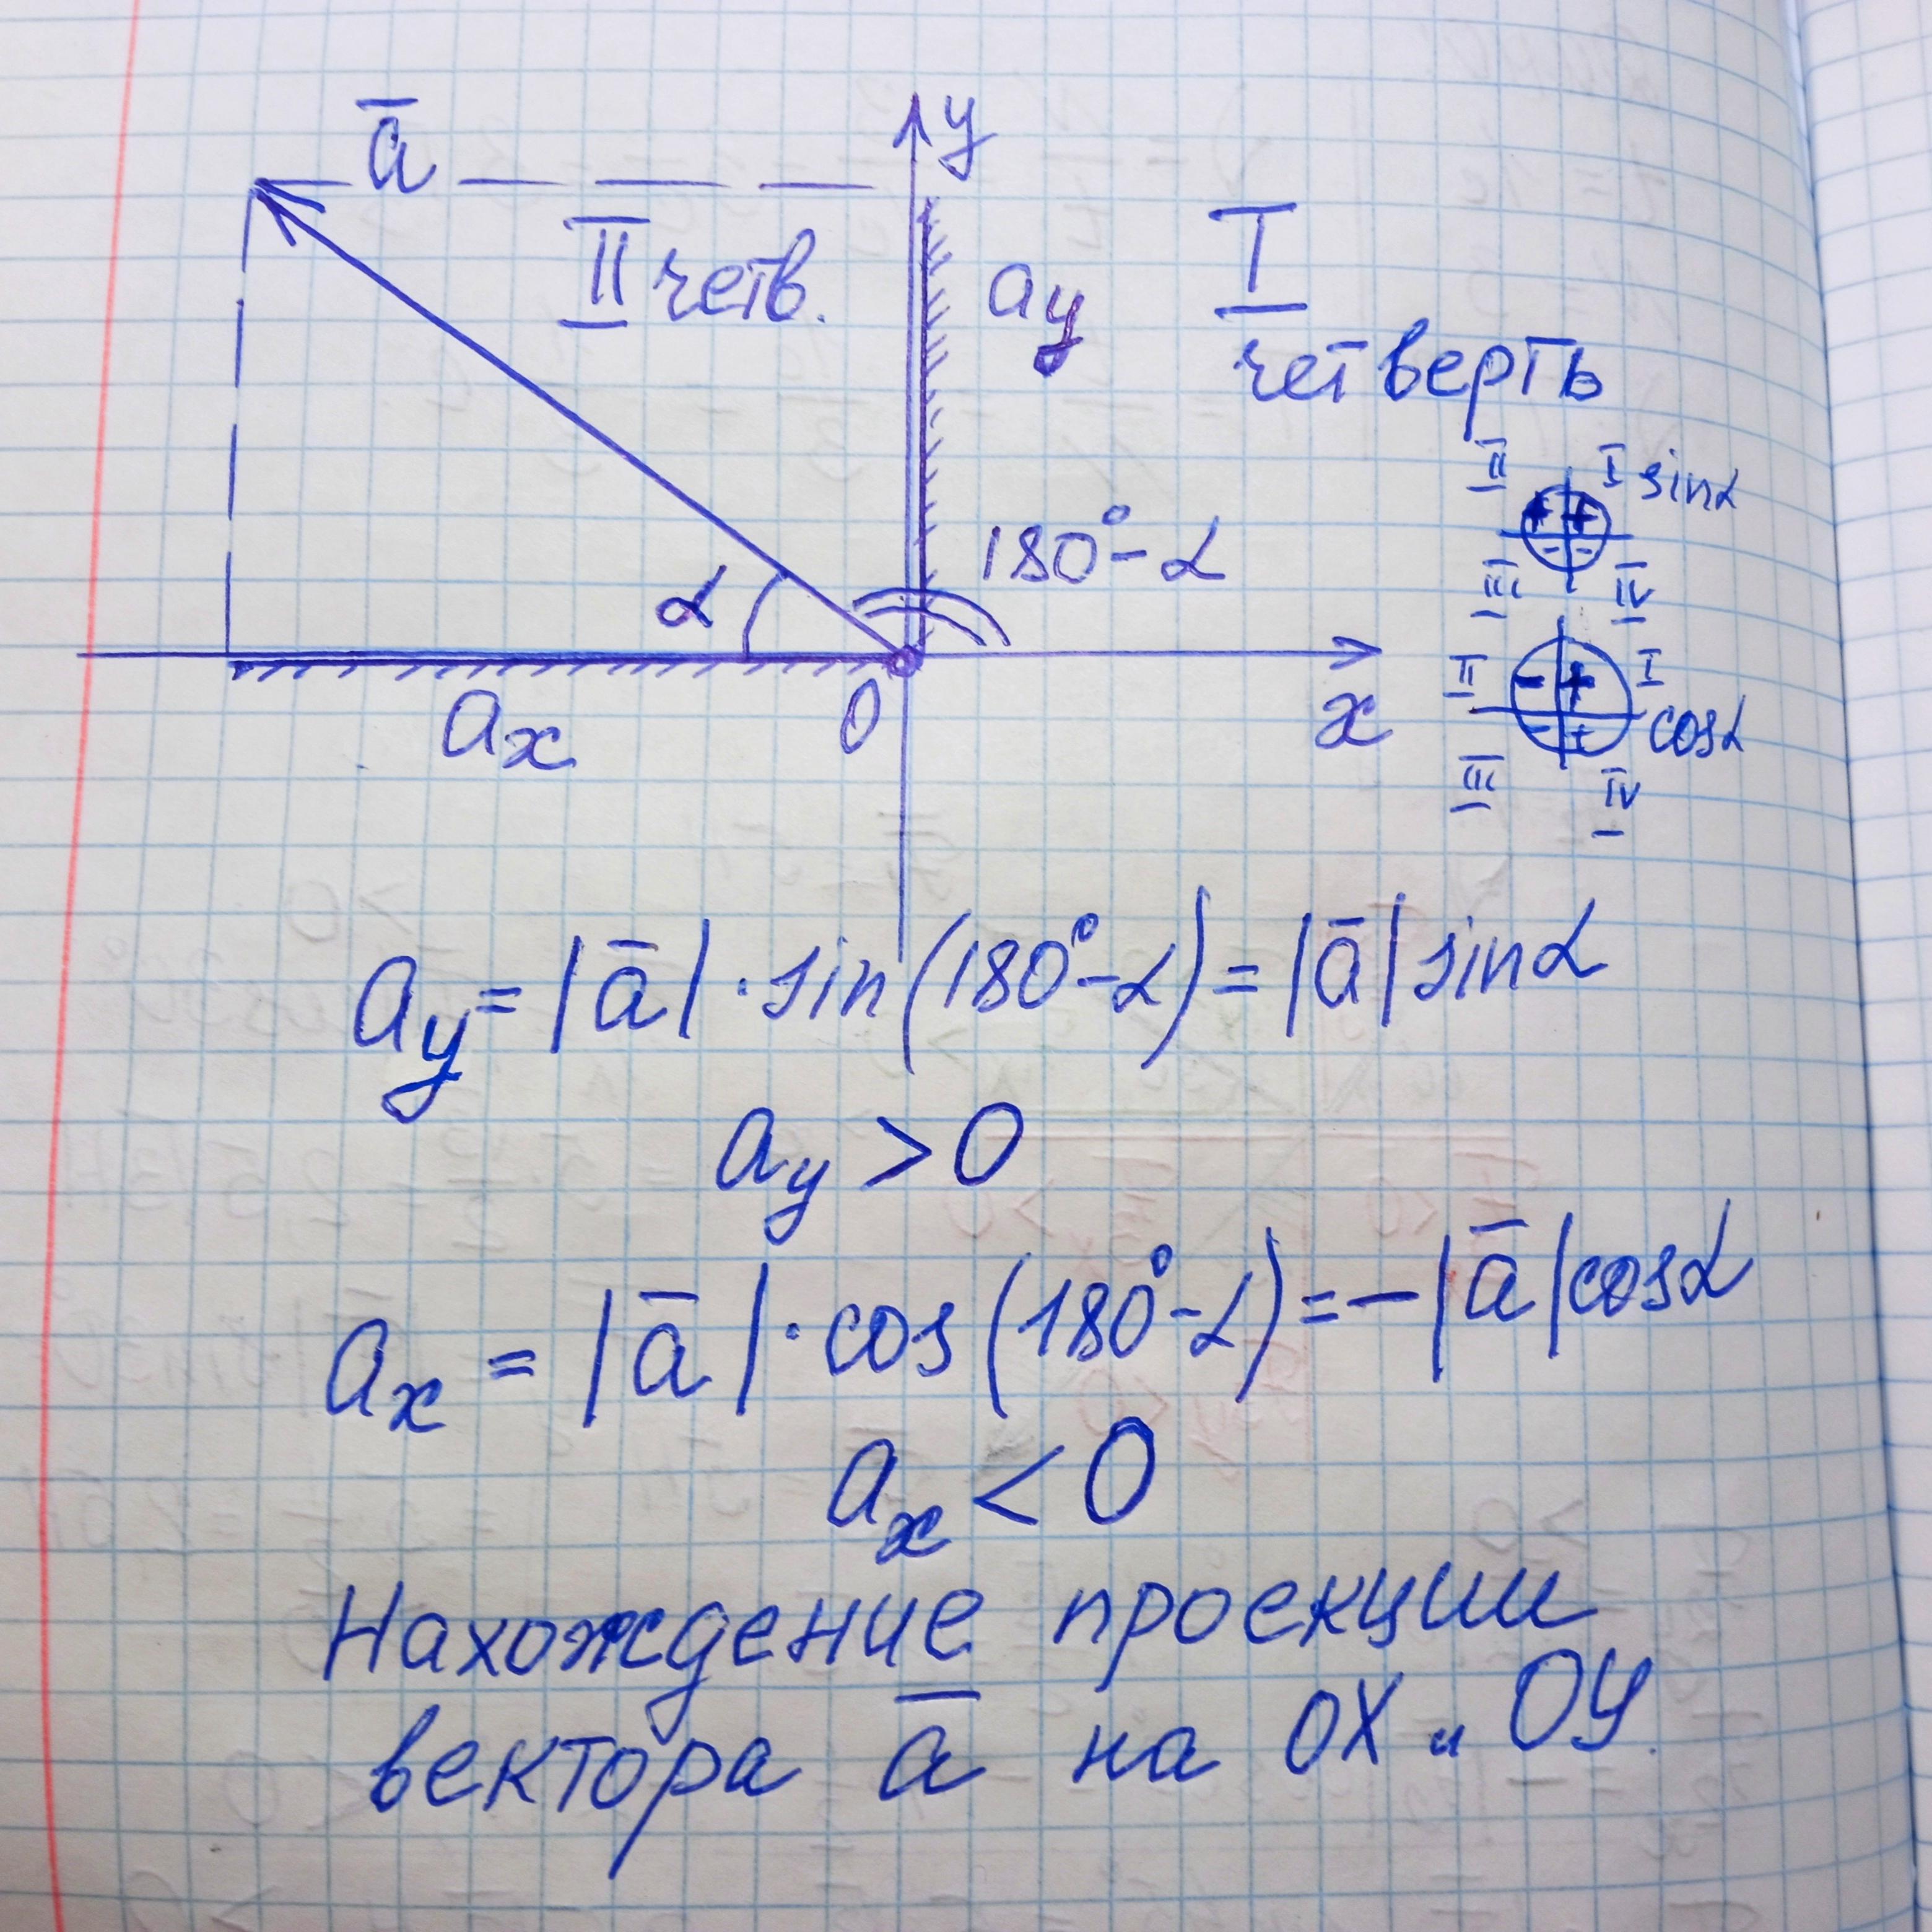 y
a̅
II четв.
ay
I
четверть
II I sinα
+ +
- -
III IV
180° - α
α
ax
0
x
II I
- +
- +
cosα
III IV
ay = |a̅| · sin(180° - α) = |a̅| sinα
ay > 0
ax = |a̅| · cos(180° - α) = -|a̅| cosα
ax < 0
Нахождение проекции
вектора a̅ на OX и OY.